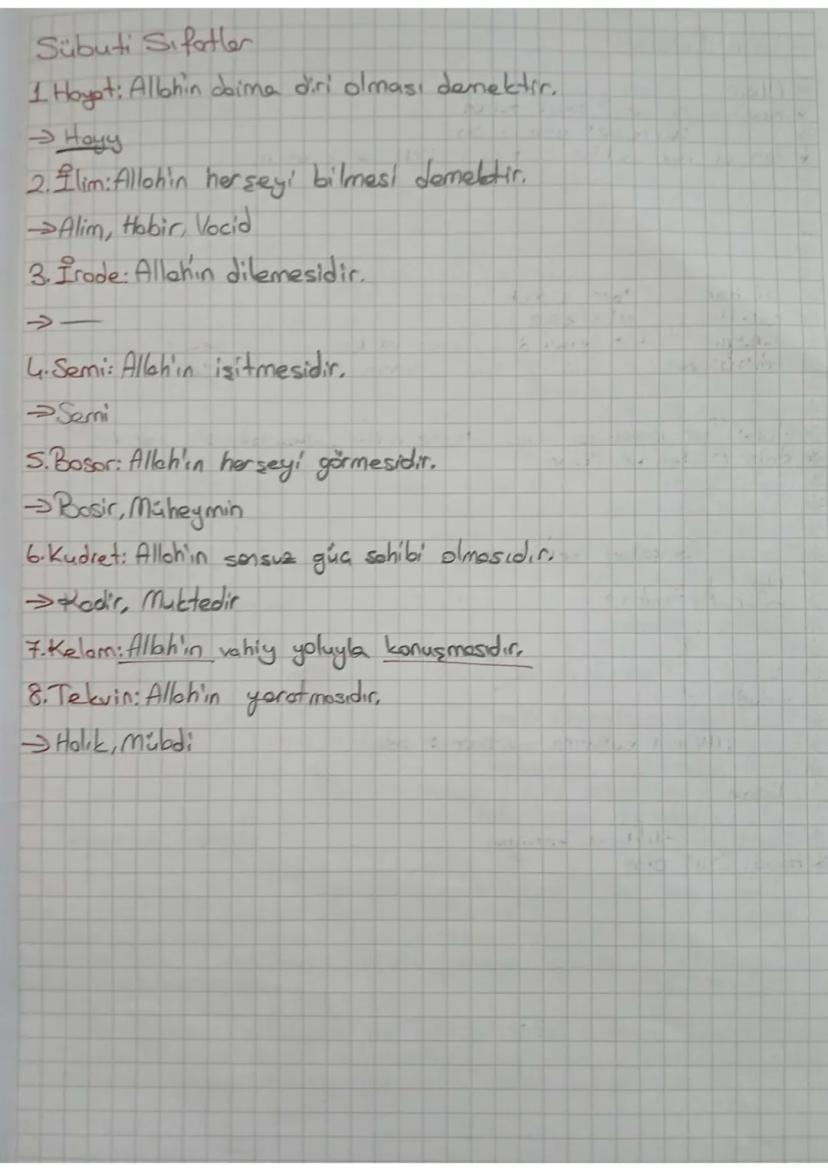 Sübuti Sıfatlar
1. Hayat: Allah'ın daima diri olması demektir.
→ Hayy
2. İlim: Allah'ın herşeyi bilmesi demektir.
→ Alim, Habir, Vacid
3. İrade: Allah'ın dilemesidir.
→ —
4. Semi: Allah'ın işitmesidir.
→ Semi
5. Basar: Allah'ın herşeyi görmesidir.
→ Basir, Müheymin
6. Kudret: Allah'ın sonsuz güç sahibi olmasıdır.
→ Kadir, Muktedir
7. Kelam: Allah'ın vahiy yoluyla konuşmasıdır.
8. Tekvin: Allah'ın yaratmasıdır.
→ Halık, Mübdi